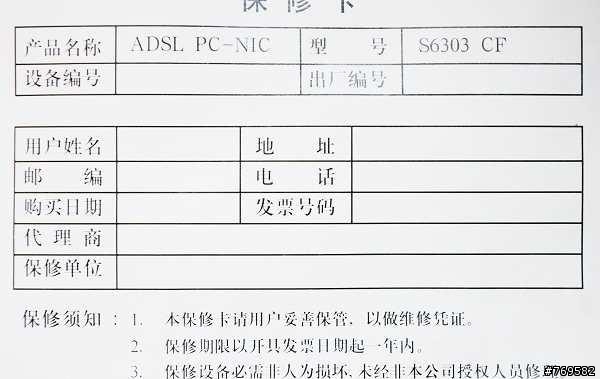 保修卡
产品名称 ADSL PC-NIC 型 号 S6303 CF
设备编号 出厂编号
用户姓名 地 址
邮 编 电 话
购买日期 发票号码
代 理 商
保修单位
保修须知: 1. 本保修卡请用户妥善保管, 以做维修凭证。
2. 保修期限以开具发票日期起一年内。
3. 保修设备必需非人为损坏, 未经非本公司授权人员修
#769582